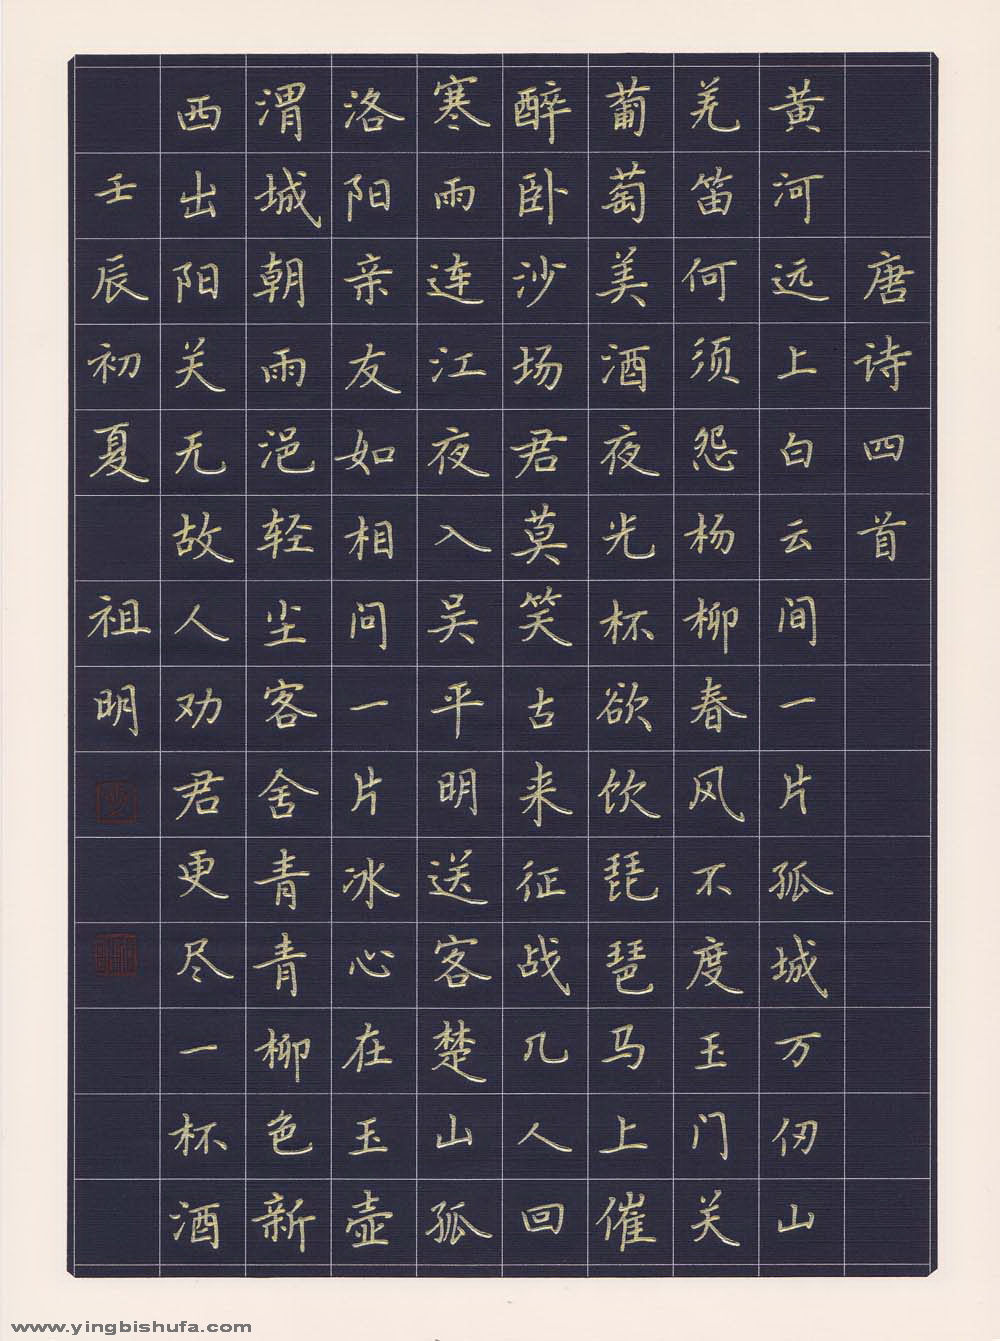 唐诗四首
黄河远上白云间一片孤城万仞山
羌笛何须怨杨柳春风不度玉门关
葡萄美酒夜光杯欲饮琵琶马上催
醉卧沙场君莫笑古来征战几人回
寒雨连江夜入吴平明送客楚山孤
洛阳亲友如相问一片冰心在玉壶
渭城朝雨浥轻尘客舍青青柳色新
西出阳关无故人劝君更尽一杯酒
壬辰初夏 祖明
www.yingbishufa.com